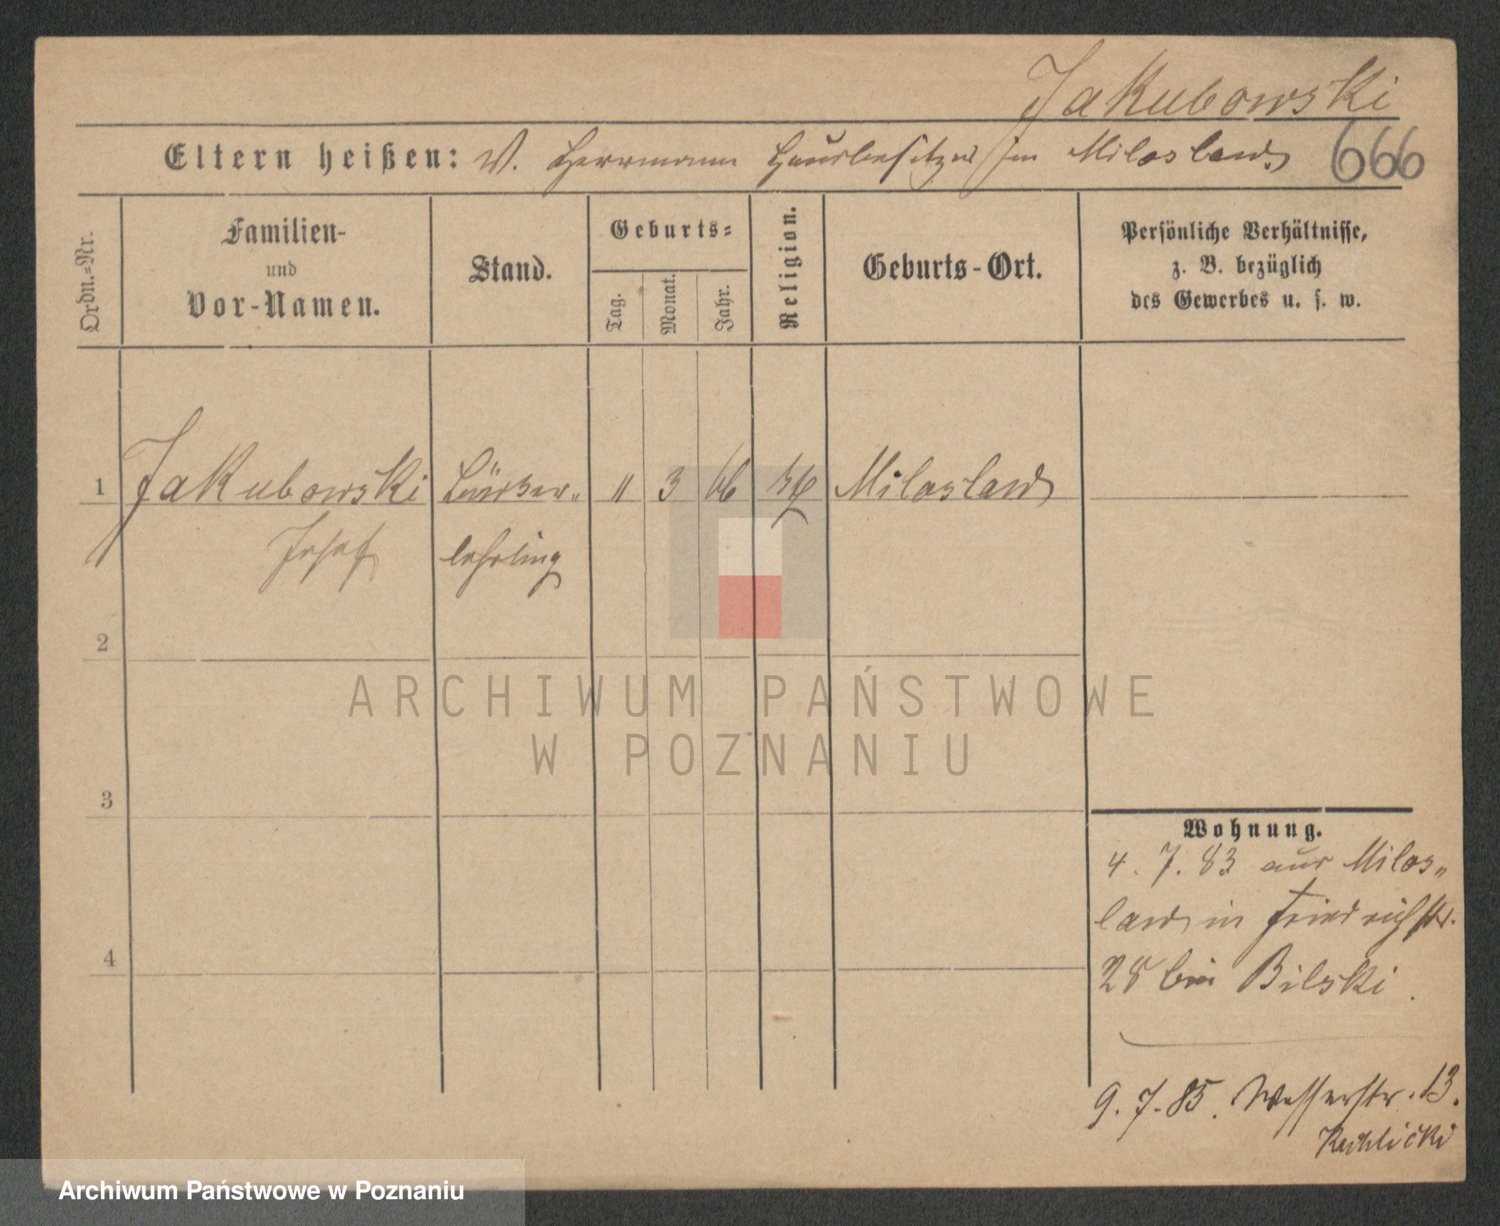 Jakubowski
Eltern heißen: V. Herrmann Hausbesitzer in Miloslaw 666
Ordn.-Nr.
Familien-
und
Vor-Namen.
Stand.
Geburts-
Tag.
Monat.
Jahr.
Religion.
Geburts-Ort.
Persönliche Verhältnisse,
z. B. bezüglich
des Gewerbes u. s. w.
1 Jakubowski 11 3 66 Miloslaw
Josef lehrling
2
3
4
ARCHIWUM PAŃSTWOWE
W POZNANIU
Wohnung.
4. 7. 83 aus Milos-
law in Friedrichstr.
28 bei Bilski.
9. 7. 85. Wasserstr. 13.
Archiwum Państwowe w Poznaniu